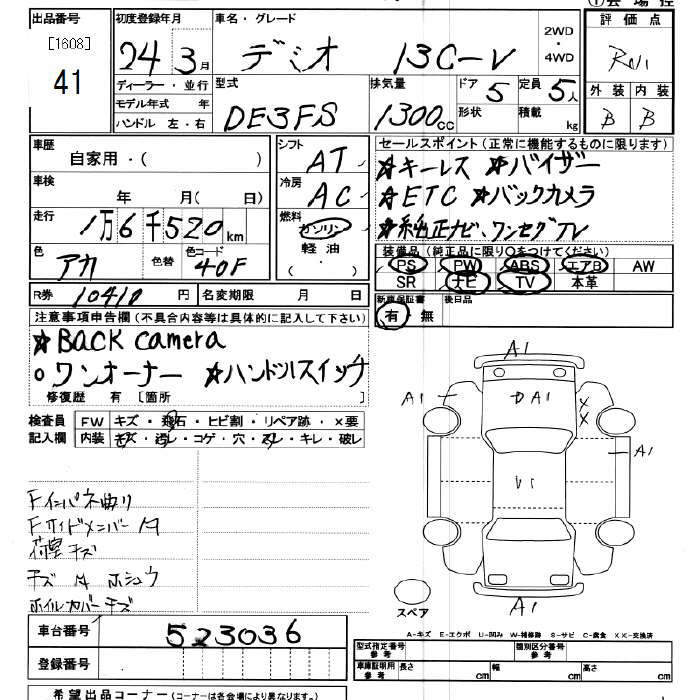 出品番号 初度登録年月 車名・グレード 評価点
[1608] 24年3月 デミオ 13C-V 2WD・4WD
41 ディーラー・並行 型式 排気量 ドア 5 定員 5人 外装 内装
モデル年式 年 DE3FS 1300cc 形状 積載 kg B B
ハンドル 左・右
車歴 自家用・( ) シフト AT セールスポイント(正常に機能するものに限ります)
車検 年 月( 日) 冷房 AC ☆キーレス ☆バイザー
☆ETC ☆バックカメラ
走行 1万6千520km 燃料 ガソリン ☆純正ナビ、ワンセグTV
色 アカ 色替 色コード 40F 軽油 ( ・ ) 装備品(純正品に限り○をつけてください)
PS PW ABS エアB AW
SR ナビ TV 本革
R券 10410円 名変期限 月 日 新車保証書 後日品
注意事項申告欄(不具合内容等は具体的に記入して下さい) 有 無
☆BACK camera
○ワンオーナー ☆ハンドルスイッチ
修復歴 有 [箇所 ]
検査員 FW キズ・飛石・ヒビ割・リペア跡・×要
記入欄 内装 キズ・汚レ・コゲ・穴・スレ・キレ・破レ
A1
A1 DA1 X X
A1
U1
Fインパネ曲り
Fサイドメンバー A
荷室キズ
キズ A ホシュウ
ホイルカバーキズ
スペア A1
A-キズ E-エクボ U-凹み W-補修跡 S-サビ C-腐食 XX-交換済
車台番号 523036
型式指定番号 参考 類別区分番号 参考
登録番号 車庫証明用 参考 長さ cm 幅 cm 高さ cm
希望出品コーナー(コーナーは各会場により異なります。)